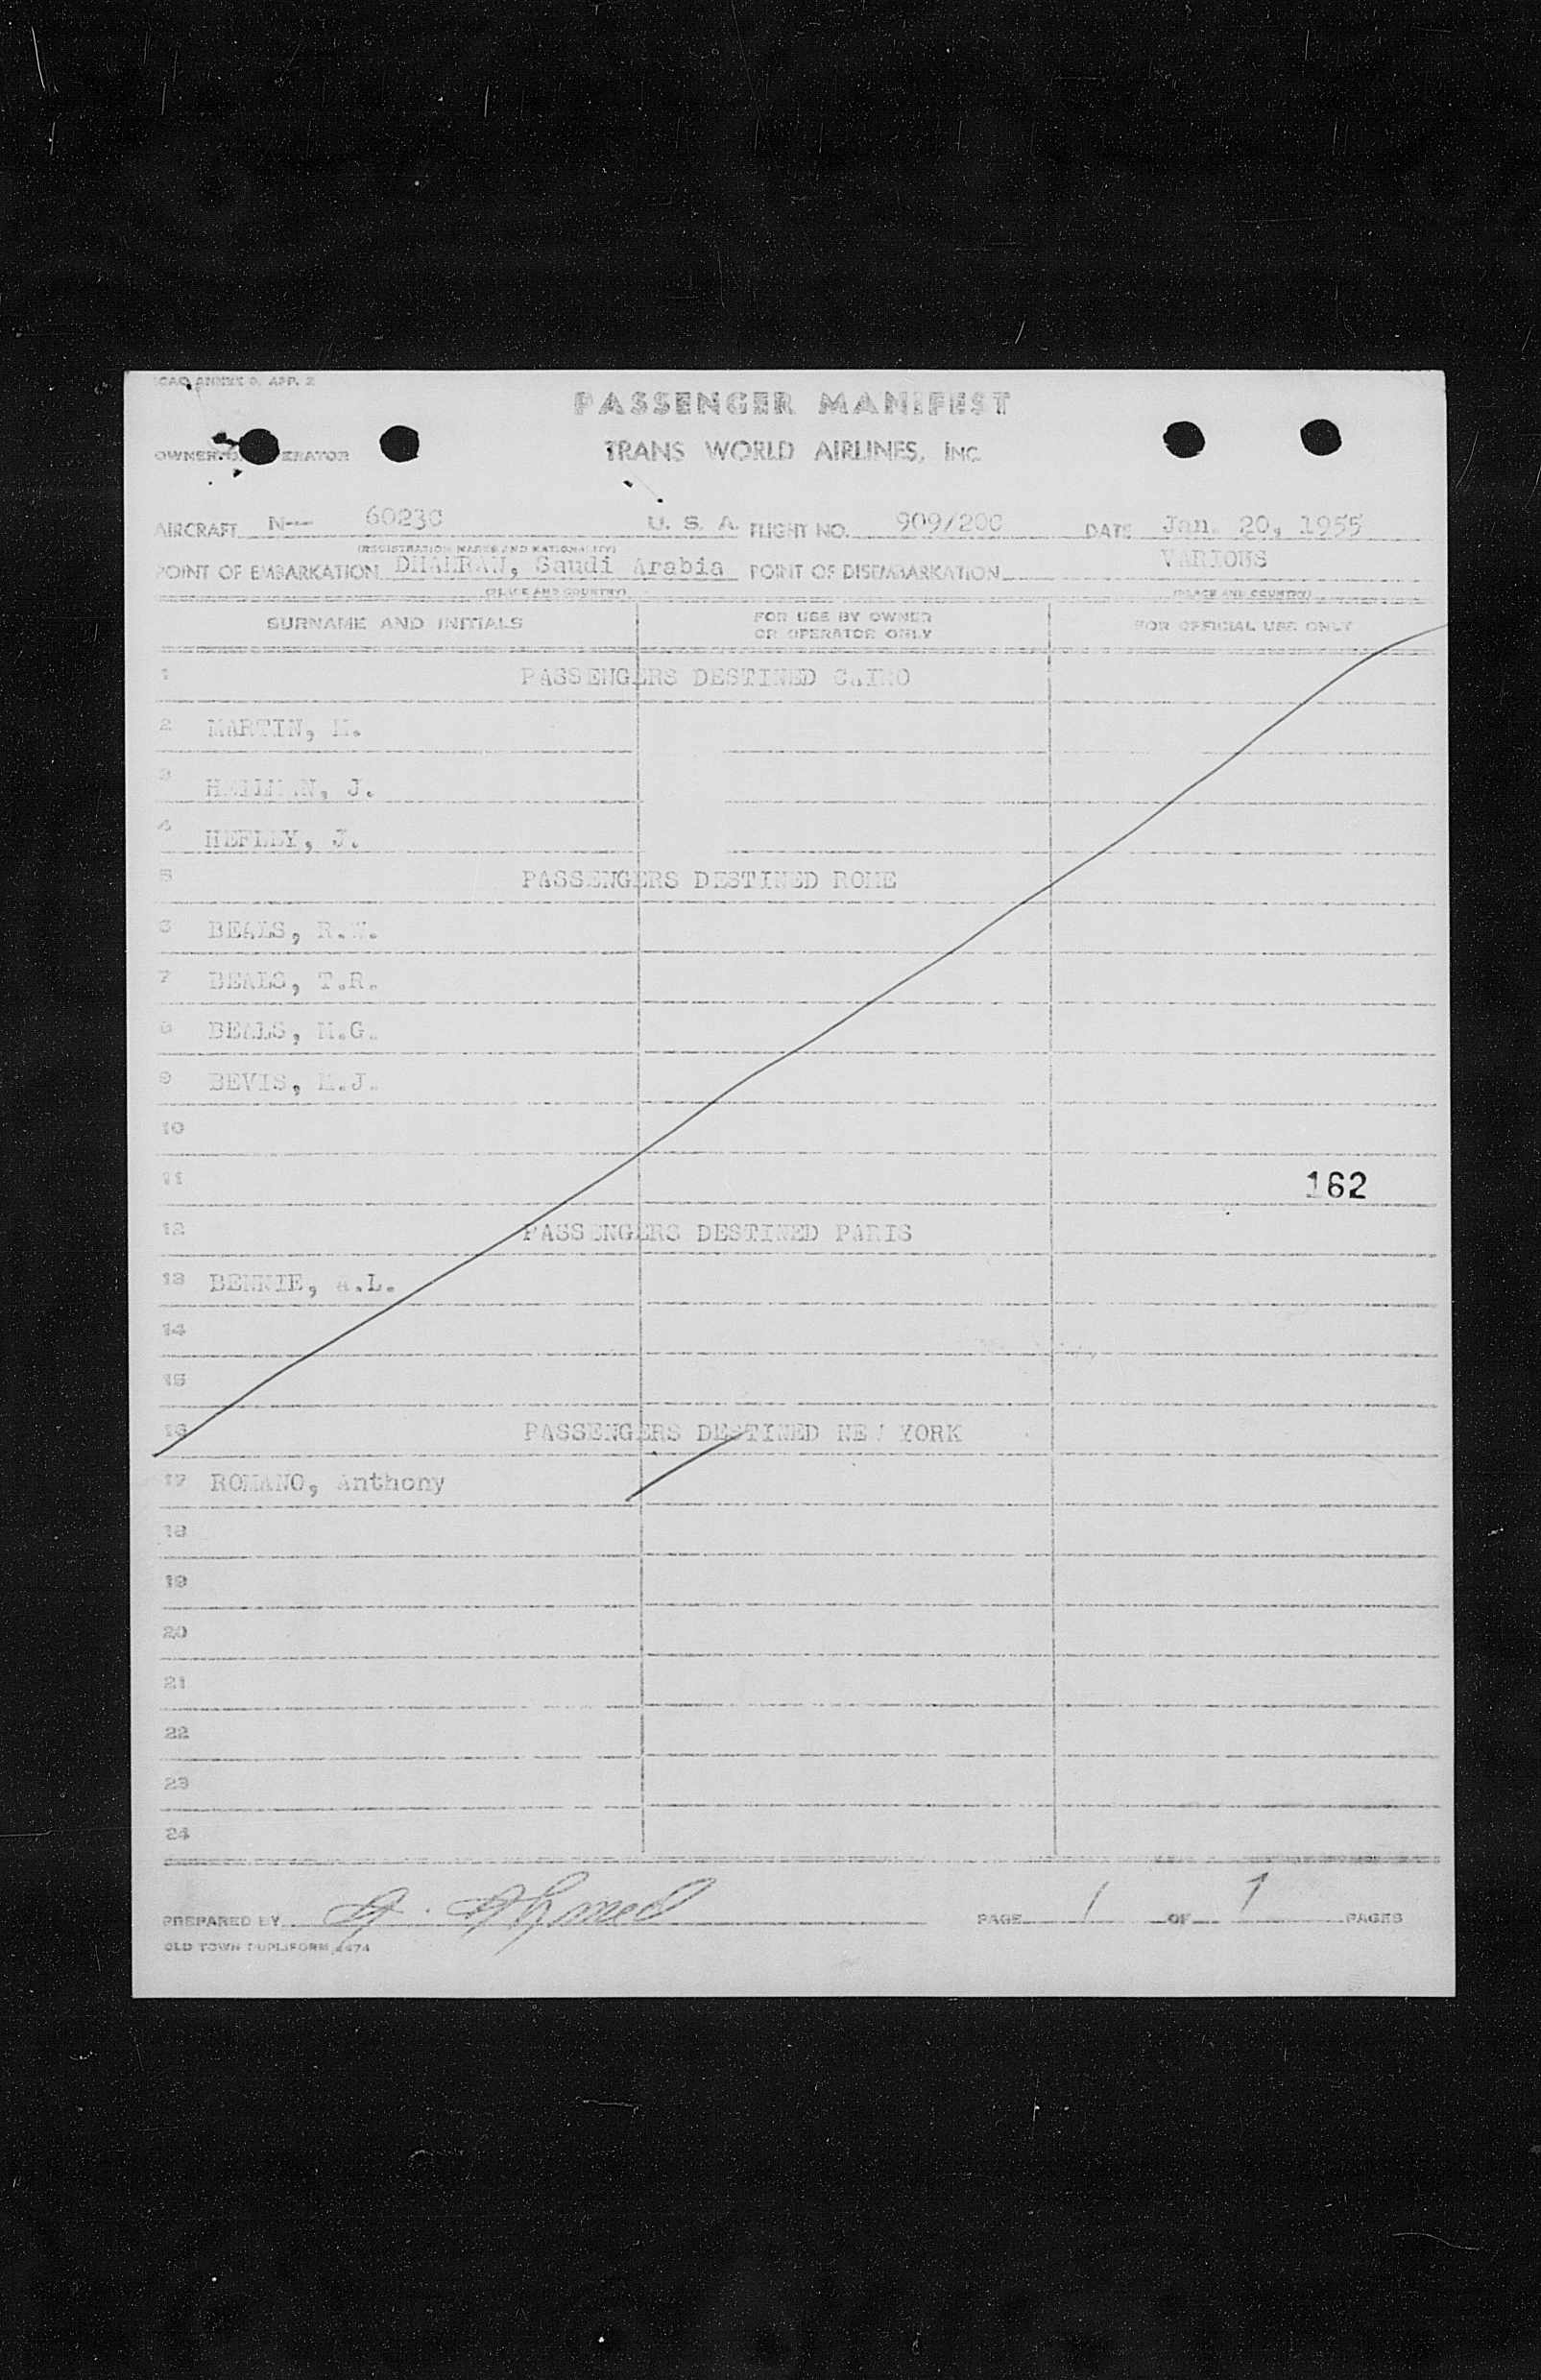 ICAO ANNEX 9, APP. 2
PASSENGER MANIFEST
OWNER OPERATOR TRANS WORLD AIRLINES, INC.
AIRCRAFT N--- 6023C U. S. A. FLIGHT NO. 909/20C DATE Jan. 20, 1955
(REGISTRATION MARKS AND NATIONALITY)
POINT OF EMBARKATION DHAHRAN, Saudi Arabia POINT OF DISEMBARKATION VARIOUS
(PLACE AND COUNTRY) (PLACE AND COUNTRY)
SURNAME AND INITIALS FOR USE BY OWNER OR OPERATOR ONLY FOR OFFICIAL USE ONLY
1 PASSENGERS DESTINED CAIRO
2 MARTIN, M.
3 J.
4 HEFLEY, J.
5 PASSENGERS DESTINED ROME
6 BEALS, R.W.
7 BEALS, T.R.
8 BEALS, M.G.
9 BEVIS, M.J.
10
11 162
12 PASSENGERS DESTINED PARIS
13 BENNIE, A.L.
14
15
16 PASSENGERS DESTINED NEW YORK
17 ROMANO, Anthony
18
19
20
21
22
23
24
PREPARED BY A. Ahmed PAGE 1 OF 1 PAGES
OLD TOWN DUPLIFORM 4474